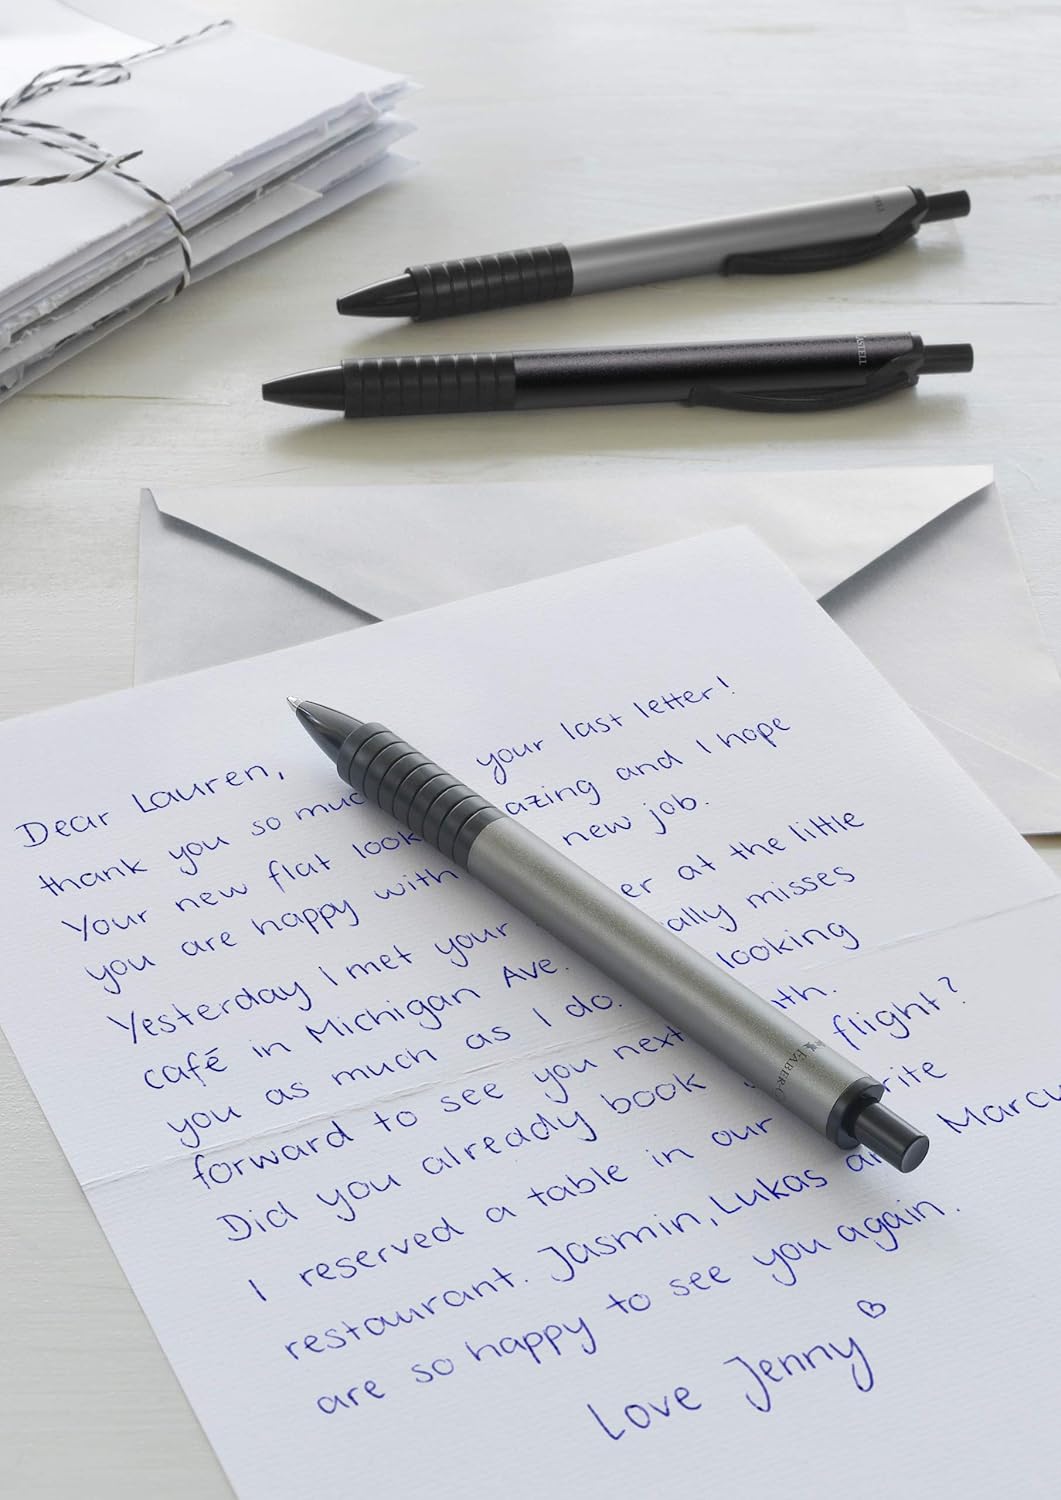 Dear Lauren,
thank you so much your last letter!
Your new flat look azing and I hope
you are happy with new job.
Yesterday I met your er at the little
café in Michigan Ave. ally misses
you as much as I do. looking
forward to see you next ith.
Did you already book flight?
I reserved a table in our rite
restaurant. Jasmin, Lukas an Marcu
are so happy to see you again.
Love Jenny
FABER-C
ASTELL